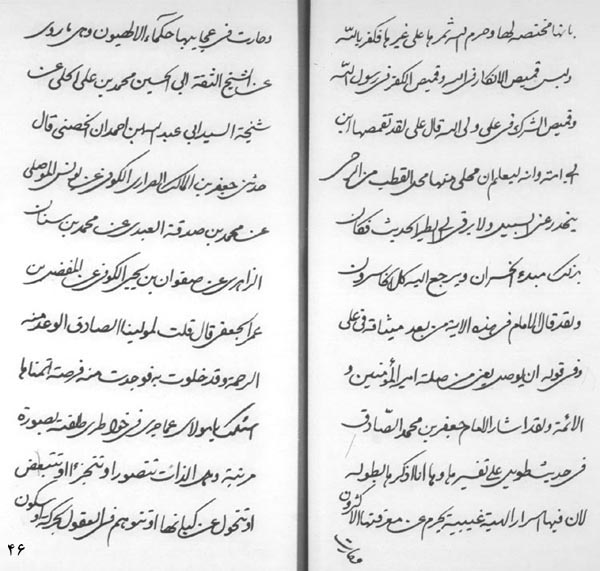 بانها مختصه لها وحرم ثمرها على غيرها فكفر بالله
ولبس قميص الانكار في الله وقميص الكفر في رسول الله
وقميص الشرك في علي ولي الله قال علي لقد تقمصها ابن
ابي وانه ليعلم ان محلي منها محل القطب من الرحى
ينحدر عني السيل ولا يرقى الي الطير الحديث فكان
بذلك مبدء الخسران ويرجع اليه كل الخاسرون
ولقد قال الامام في هذه الاية من بعد ميثاقه في علي
وفي قوله ان يوصل يعني من صلة امير المؤمنين و
الائمة ولقد اشار الامام جعفر بن محمد الصادق
في حديث طويل على تفسيرها وها انا اذكرها بطوله
لان فيها اسرار الهية غيبية يحرم عن معرفتها الاكثرون
وحارت
وحارت في عجايبها حكماء الالهيون وهي ما روي
عن الشيخ الثقة ابي الحسين محمد بن علي الحلي عن
شيخة السيد ابي عبد الله ابن احمدان الخصيبي قال
حدثني جعفر بن المالك الفزاري الكوفي عن يونس الموصلي
عن محمد بن صدقة العبدي عن محمد بن سنان
الزاهري عن صفوان بن يحيى الكوفي عن المفضل بن
عمر الجعفي قال قلت لمولينا الصادق الوعد منه
الرحمة وقد خلوت به فوجدت منه فرصة اتمناها
اسئلك يا مولاي عما جرى في خواطري
مرتبة وهل الذات تتصور او تتجزء او تتبعض
او تتحول عن كيانها او تتوهم في العقول بحركة او سكون
۴۶